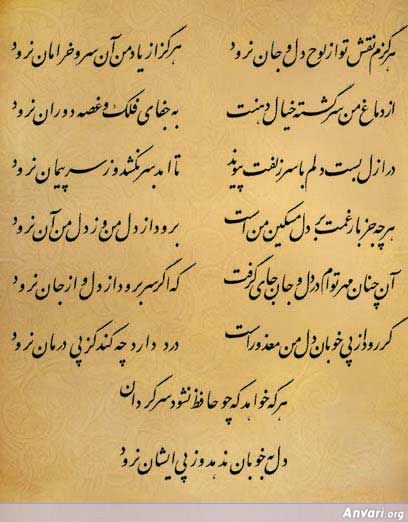 هرگزم نقش تو از لوح دل و جان نرود هرگز از یاد من آن سرو خرامان نرود
از دماغ من سرگشته خیال دهنت به جفای فلک و غصه دوران نرود
در ازل بست دلم با سر زلفت پیوند تا ابد سر نکشد وز سر پیمان نرود
هرچه جز بار غمت بر دل مسکین من است برود از دل من وز دل من آن نرود
آن چنان مهر توام در دل و جان جای گرفت که اگر سر برود از دل و از جان نرود
گر رود از پی خوبان دل من معذور است درد دارد چه کند کز پی درمان نرود
هر که خواهد که چو حافظ نشود سرگردان
دل به خوبان ندهد وز پی ایشان نرود
Anvari.org